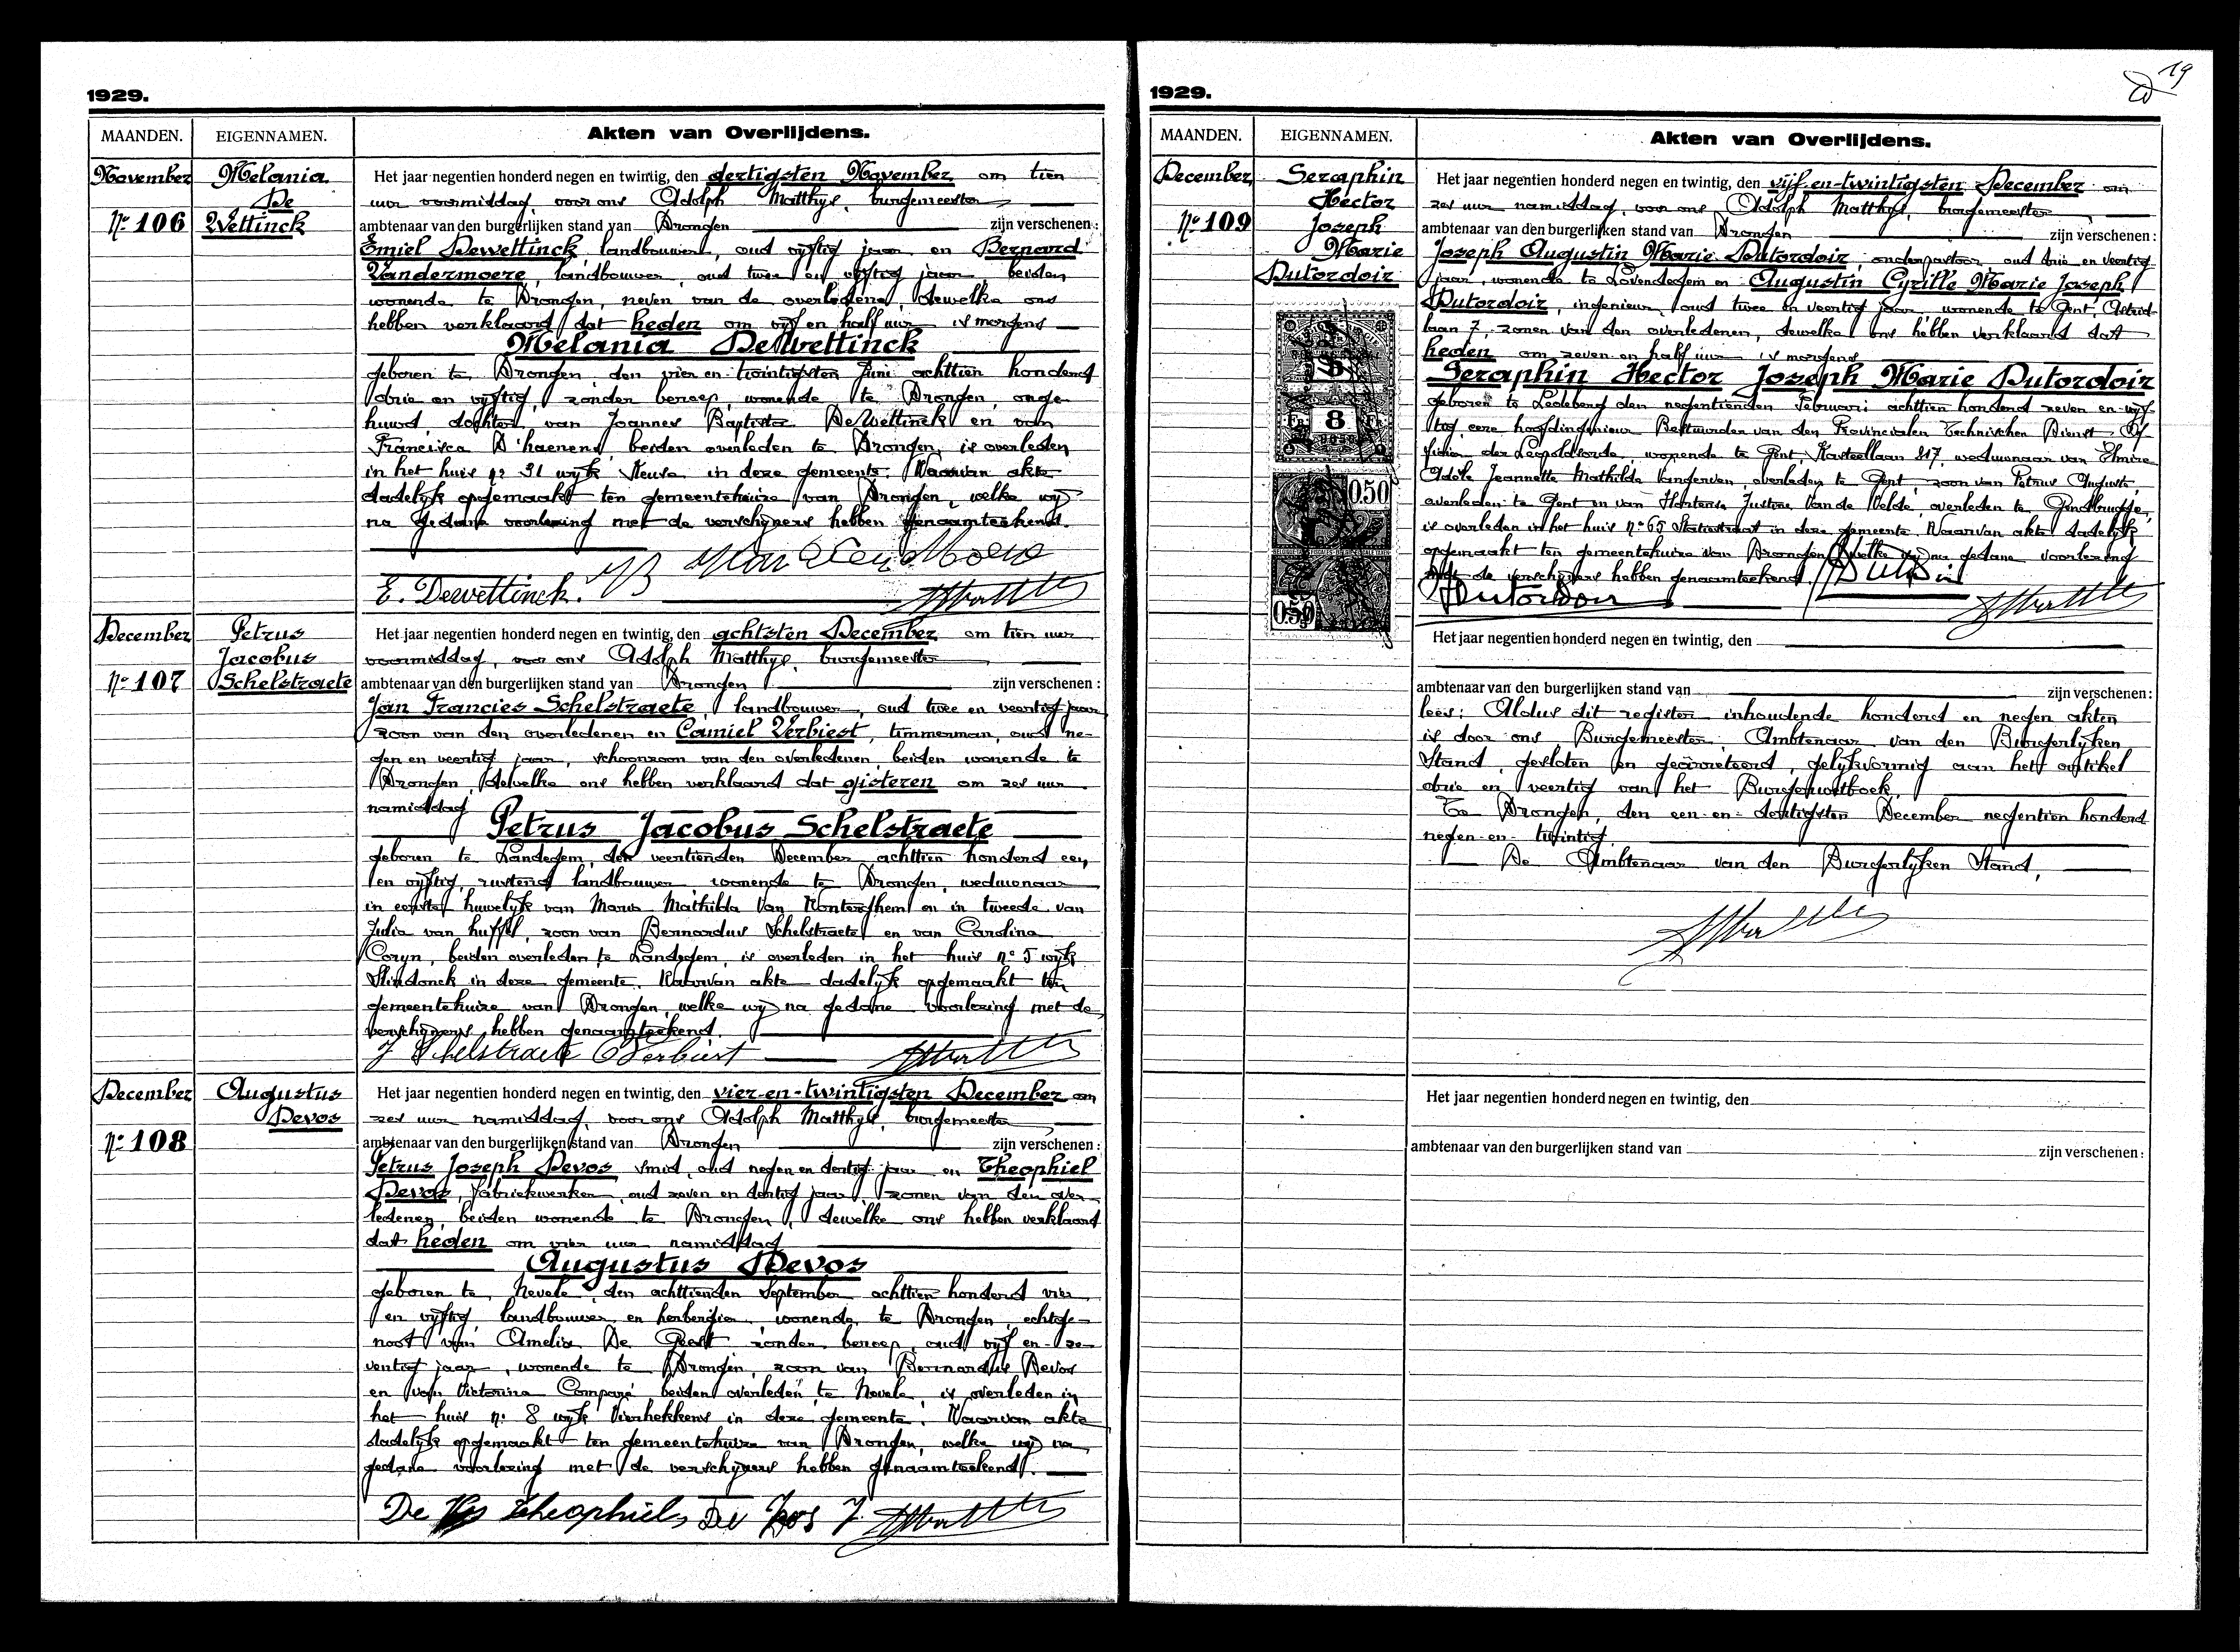 1929.
MAANDEN. EIGENNAMEN. Akten van Overlijdens.
November
Nr 106
Melania
De
Wettinck
Het jaar negentien honderd negen en twintig, den dertigsten November om tien
uur voormiddag, voor ons Adolph Matthys, burgemeester
ambtenaar van den burgerlijken stand van Drongen zijn verschenen:
Emiel Dewettinck, landbouwer, oud vijftig jaar en Bernard
Vandermoere, landbouwer, oud twee en vijftig jaar, beiden
wonende te Drongen, neven van de overledene, dewelke ons
hebben verklaard dat heden om vijf en half uur 's morgens
Melania DeWettinck
geboren te Drongen, den vier en twintigsten Juni achttien honderd
drie en vijftig, zonder beroep, wonende te Drongen, onge-
huwd, dochter van Joannes Baptiste DeWettinck en van
Francisca D'haenens, beiden overleden te Drongen, is overleden
in het huis nr 31 wijk in deze gemeente. Waarvan akte
dadelijk opgemaakt ten gemeentehuize van Drongen, welke wij
na gedane voorlezing met de verschijners hebben genaamteekend.
E. Dewettinck.
December
Nr 107
Petrus
Jacobus
Schelstraete
Het jaar negentien honderd negen en twintig, den achtsten December om tien uur
voormiddag, voor ons Adolph Matthys, burgemeester
ambtenaar van den burgerlijken stand van Drongen zijn verschenen:
Jan Francies Schelstraete, landbouwer, oud twee en veertig jaar
zoon van den overledenen en Camiel Verbiest, timmerman, oud ne-
gen en veertig jaar, schoonzoon van den overledenen, beiden wonende te
Drongen, dewelke ons hebben verklaard dat gisteren om zes uur
namiddag
Petrus Jacobus Schelstraete
geboren te Landegem, den veertienden December achttien honderd een
en vijftig, rustend landbouwer, wonende te Drongen, weduwnaar
in eerste huwelijk van Maria Mathilda Van en in tweede van
Julia van huffel, zoon van Bernardus Schelstraete en van Carolina
Coryn, beiden overleden te Landegem, is overleden in het huis nr 5 wijk
in deze gemeente. Waarvan akte dadelijk opgemaakt ten
gemeentehuize van Drongen, welke wij na gedane voorlezing met de
verschijners hebben genaamteekend.
J Schelstraete C Verbiest
December
Nr 108
Augustus
Devos
Het jaar negentien honderd negen en twintig, den vier-en-twintigsten December om
zes uur namiddag, voor ons Adolph Matthys, burgemeester
ambtenaar van den burgerlijken stand van Drongen zijn verschenen:
Petrus Joseph Devos smid, oud negen en dertig jaar en Theophiel
Devos, fabriekwerker, oud zeven en dertig jaar, zonen van den over-
ledenen, beiden wonende te Drongen, dewelke ons hebben verklaard
dat heden om vier uur namiddag
Augustus Devos
geboren te Nevele, den achttienden September achttien honderd vier
en vijftig, landbouwer en herbergier, wonende te Drongen, echtge-
noot van Amelia De Geest zonder beroep, oud vijf en ze-
ventig jaar, wonende te Drongen, zoon van Bernardus Devos
en van Victorina Compané, beiden overleden te Nevele, is overleden in
het huis nr 8 wijk Vierhekkens in deze gemeente. Waarvan akte
dadelijk opgemaakt ten gemeentehuize van Drongen, welke wij na
gedane voorlezing met de verschijners hebben genaamteekend.
De Vos theophiel, De Vos J.
19
1929.
MAANDEN. EIGENNAMEN. Akten van Overlijdens.
December
Nr 109
Seraphin
Hector
Joseph
Marie
Dutordoir
8
0.50
0.50
Het jaar negentien honderd negen en twintig, den vijf en-twintigsten December om
zes uur namiddag, voor ons Adolph Matthys, burgemeester
ambtenaar van den burgerlijken stand van Drongen zijn verschenen:
Joseph Augustin Marie Dutordoir, onderpastoor, oud drie en veertig
jaar, wonende te Lovendegem en Augustin Cyrille Marie Joseph
Dutordoir, ingenieur, oud twee en veertig jaar, wonende te Gent, Astrid-
laan 7, zonen van den overledenen, dewelke ons hebben verklaard dat
heden om zeven en half uur 's morgens
Seraphin Hector Joseph Marie Dutordoir
geboren te Ledeberg den negentienden Februari achttien honderd zeven en vijf-
tig, eere hoofdingenieur Bestuurder van den Provincialen Technischen Dienst, Of-
ficier der Leopoldsorde, wonende te Gent, Kasteellaan 217, weduwnaar van Elmire
Adèle Jeannette Mathilda Vanderven, overleden te Gent, zoon van Petrus Auguste,
overleden te Gent en van Hortense Justine Van de Velde, overleden te Gendbrugge,
is overleden in het huis nr 65 Statiestraat in deze gemeente. Waarvan akte dadelijk
opgemaakt ten gemeentehuize van Drongen, welke wij na gedane voorlezing
met de verschijners hebben genaamteekend.
Dutordoir
Het jaar negentien honderd negen en twintig, den
ambtenaar van den burgerlijken stand van zijn verschenen:
lees: Aldus dit register inhoudende honderd en negen akten
is door ons Burgemeester, Ambtenaar van den Burgerlijken
Stand, gesloten en geärreteerd, gelijkvormig aan het artikel
drie en veertig van het Burgerwetboek.
Te Drongen, den een-en-dertigsten December negentien honderd
negen-en-twintig.
De Ambtenaar van den Burgerlijken Stand,
Het jaar negentien honderd negen en twintig, den
ambtenaar van den burgerlijken stand van zijn verschenen: